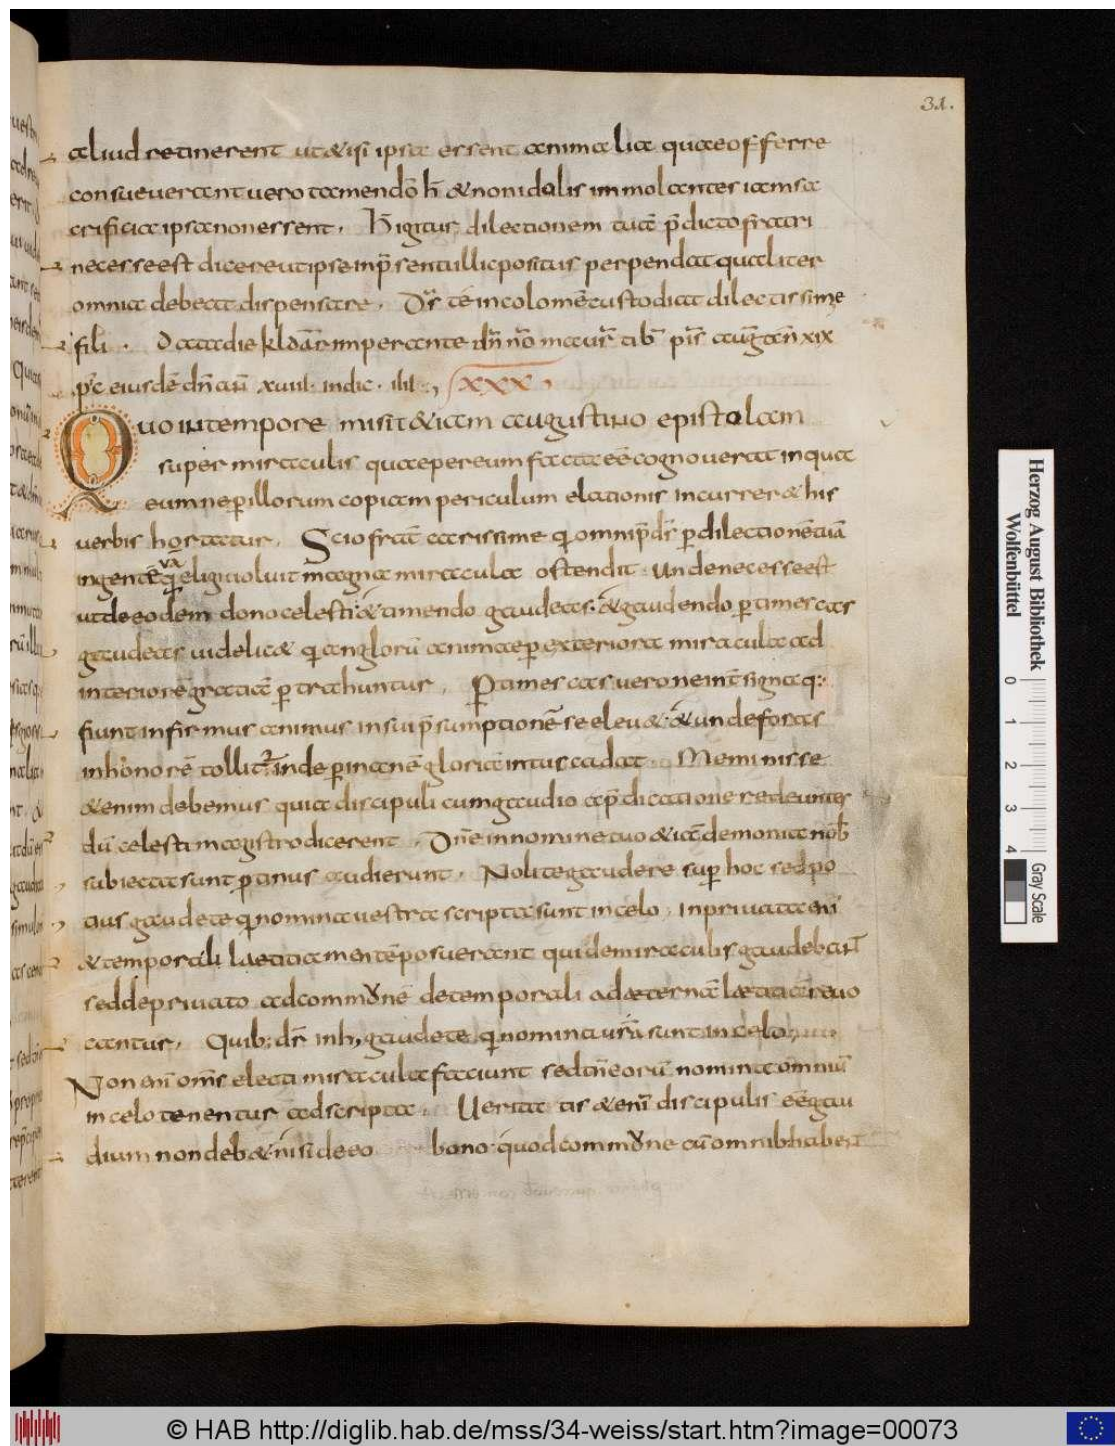 31.
aliud retinerent ut & isi ipsa essent animalia quae offerre
consueverant vero tamen dō h̄ & non idolis immolantes iam sa
crificia ipsa non essent. H̄ igitur dilectionem tuā p̄dicto fratri
necesse est dicere ut ipse in p̄senti illic positus perpendat qualiter
omnia debeat dispensare. Dr̄ te incolomē custodiat dilectissime
fili. Data die kld̄ imperante dn̄ nō mauꝝ tib pīs aug an̄ xix
p̄c eiusdē dn̄ an̄ xviii. indic. iiii. xxx,
Quo in tempore misit & iam augustino epistolam
super miraculis quae per eum facta eē cognoverat in qua
eum ne p illorum copiam periculum elationis incurrer& his
verbis hortatur. Scio frat̄ carissime q̄ omnip̄ dr̄ p dilectionē tuā
ingentē q̄ eligi voluit magna miracula ostendit. Unde necesse est
ut de eodem dono celesti & timendo gaudeas. & gaudendo ptimescas
gaudeas videlic& q̄ anglorū animae p exteriora miracula ad
interiorē gratiā p trahuntur. Ptimescas vero ne int̄ signa q:
fiunt infirmus animus in sui p̄sumptionē se elev&. & unde foras
in honorē tollit͛ inde p inanē gloriā intus cadat. Meminisse
&enim debemus quia discipuli cum gaudio a p̄dicatione redeuntes
dū celesti magistro dicerent. Dn̄e in nomine tuo & iā demonia nob̄
subiecta sunt p tinus audierunt. Nolite gaudere sup hoc sed po
tius gaudete q̄ nomina vestra scripta sunt in celo. In privata en̄
& temporali laetitia mentē posuerant qui de miraculis gaudebant
sed de privato ad commvnē de temporali ad aeternā laetitiā revo
cantur. Quib; dr̄ in h, gaudete q̄ nomina vr̄a sunt in celo
Non en̄ om̄s electi miracula faciunt sed tn̄ eorū nomina omniū
in celo tenentur adscripta. Veritatis & en̄ discipulis eē gau
dium non deb& nisi de eo bono quod commvne cū omnib; habent
Herzog August Bibliothek
Wolfenbüttel
0 1 2 3 4
Gray Scale
© HAB http://diglib.hab.de/mss/34-weiss/start.htm?image=00073